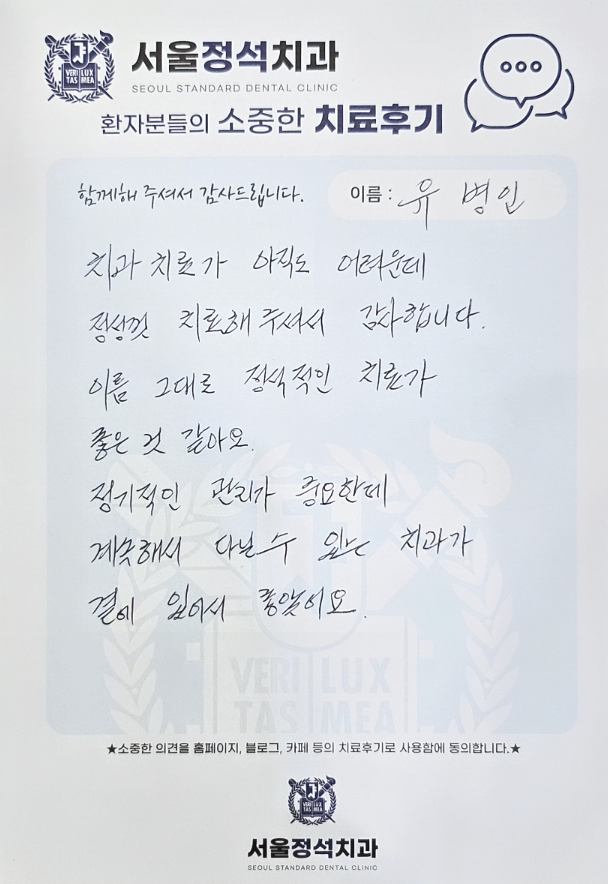 서울정석치과
SEOUL STANDARD DENTAL CLINIC
환자분들의 소중한 치료후기
함께해 주셔서 감사드립니다.
이름 : 유 병인
치과 치료가 아직도 어려운데
정성껏 치료해 주셔서 감사합니다.
이름 그대로 정석적인 치료가
좋은 것 같아요.
정기적인 관리가 중요한데
계속해서 다닐 수 있는 치과가
곁에 있어서 좋았어요.
VERI LUX
TAS MEA
★소중한 의견을 홈페이지, 블로그, 카페 등의 치료후기로 사용함에 동의합니다.★
서울정석치과
SEOUL STANDARD DENTAL CLINIC